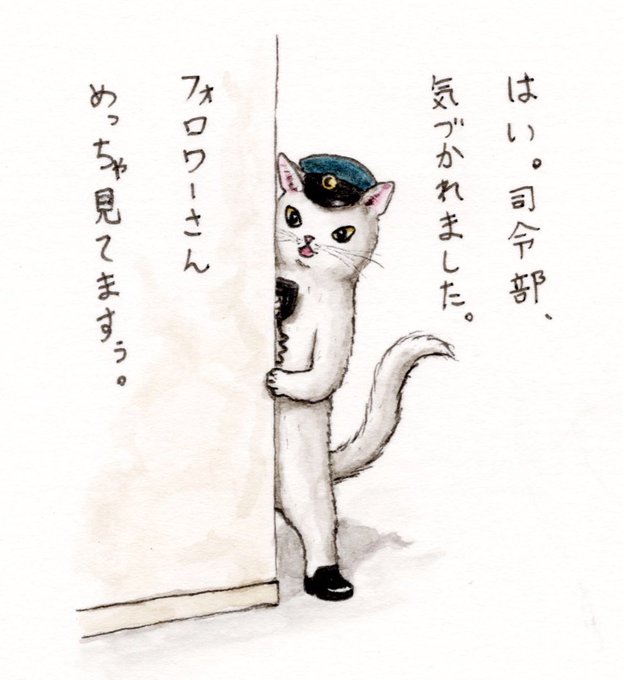 はい。司令部、
気づかれました。
フォロワーさん
めっちゃ見てますぅ。